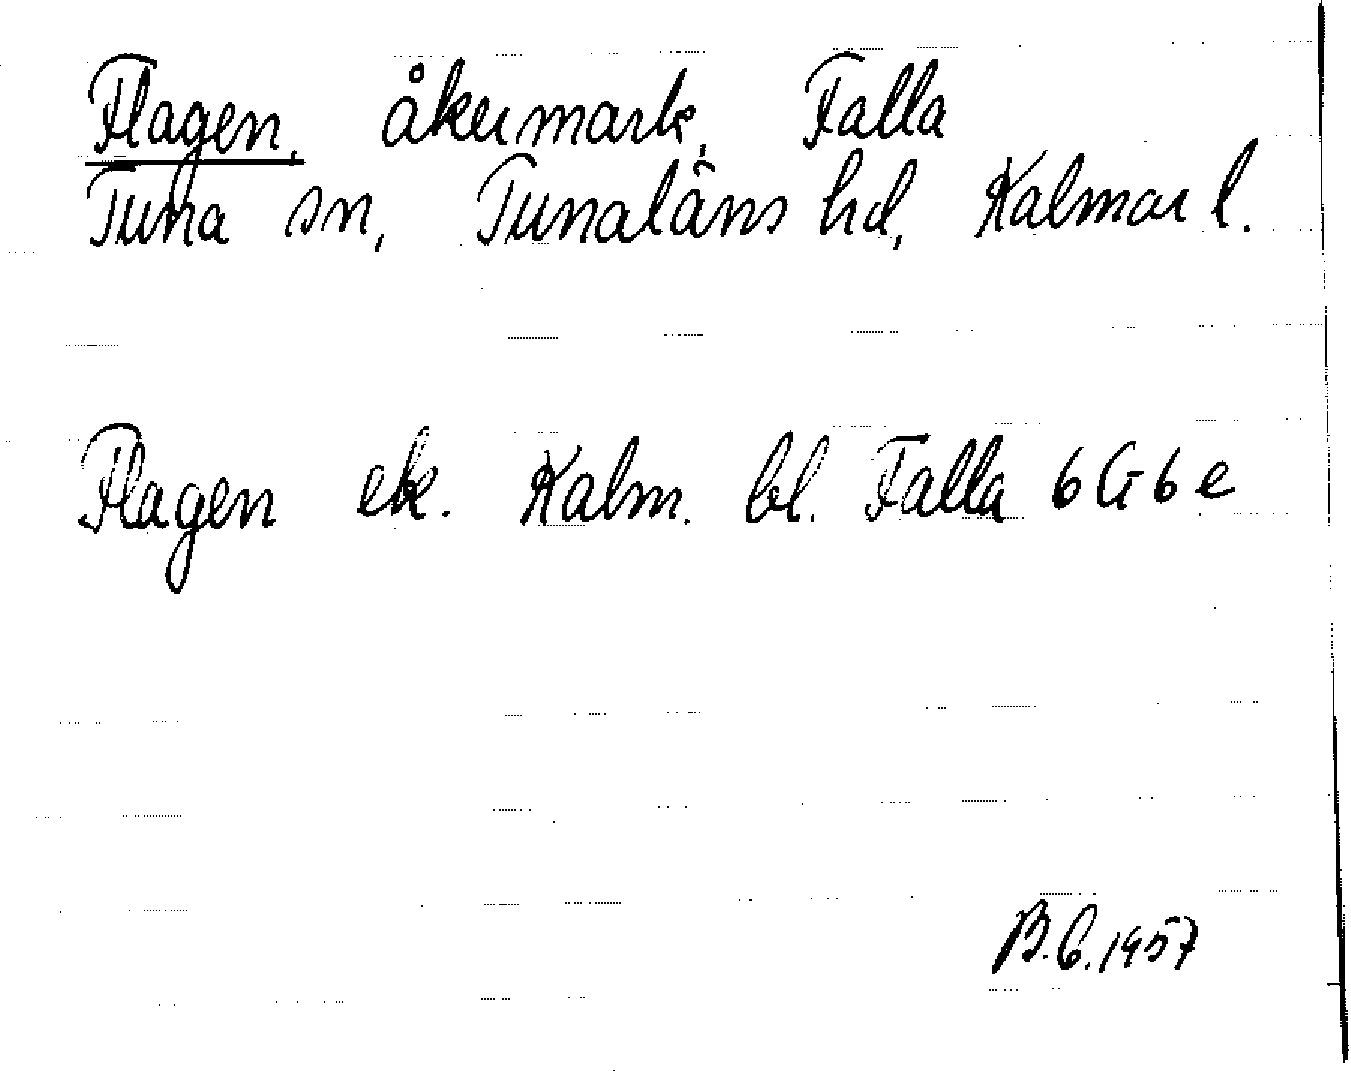 Flagen, åkermark, Falla
Tuna sn, Tunaläns hd, Kalmar l.
Flagen ek. Kalm. bl. Falla 6G6e
B.C. 1957